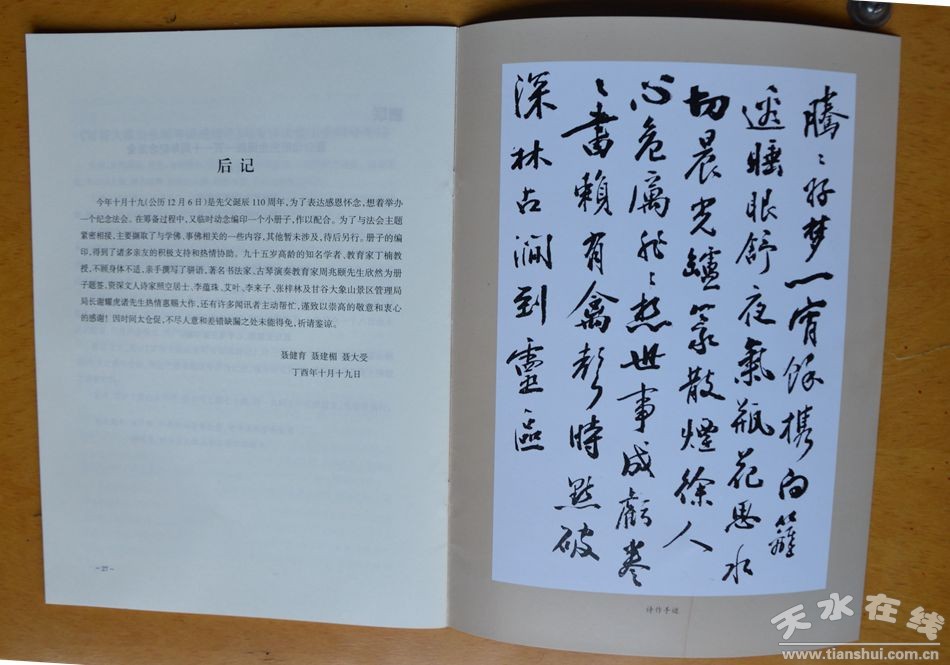 后记
今年十月十九(公历12月6日)是先父诞辰110周年,为了表达感恩怀念,想着举办
一个纪念法会。在筹备过程中,又临时动念编印一个小册子,作以配合。为了与法会主题
紧密相接,主要撷取了与学佛、事佛相关的一些内容,其他暂未涉及,待后另行。册子的编
印,得到了诸多亲友的积极支持和热情协助。九十五岁高龄的知名学者、教育家丁楠教
授,不顾身体不适,亲手撰写了骈语,著名书法家、古琴演奏教育家周兆颐先生欣然为册
子题签,资深文人诗家照空居士、李蕴珠、艾叶、李来子、张梓林及甘谷大象山景区管理局
局长谢耀虎诸先生热情惠赐大作,还有许多闻讯者主动帮忙,谨致以崇高的敬意和衷心
的感谢!因时间太仓促,不尽人意和差错缺漏之处未能得免,祈请鉴谅。
聂健育 聂建楣 聂大受
丁酉年十月十九日
-27-
腾〻好梦一宵馀携向篱
边睡眼舒夜气瓶花思水
切晨光炉篆散烟徐人
心危厉非〻想世事成亏卷
〻书赖有禽声时点破
深林古涧到灵区
诗作手迹
天水在线
www.tianshui.com.cn